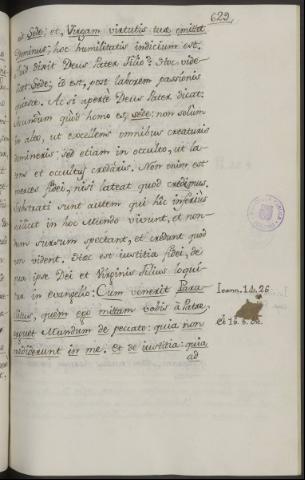 629
ad Sede; et, Virgam virtutis tuæ emittet
Dominus; hoc humilitatis indicium est.
Quid dixit Deus Pater Filio? Hoc vide-
licet Sede; id est, post laborem passionis
quiesce. Ac si apertè Deus Pater dicat:
Secundum quòd homo es, sede: non solum
in alto, ut excellens omnibus creaturis
domineris; sed etiam in occulto, ut la-
tens et occultus credaris. Non enim est
merces fidei, nisi lateat quod credimus.
Substrati sunt autem qui hîc inferius
in hoc Mundo vivunt, et non-
dum sursum spectant, et credunt quod
non vident. Hæc est iustitia fidei, de
qua ipse Dei et Virginis Filius loqui-
tur in evangelio: Cum venerit Para-
clitus, quem ego mittam vobis à Patre,
arguet Mundum de peccato: quia non
crediderunt in me. Et de iustitia: quia
ad
Ioann. 14. 26.
et 16. 8.